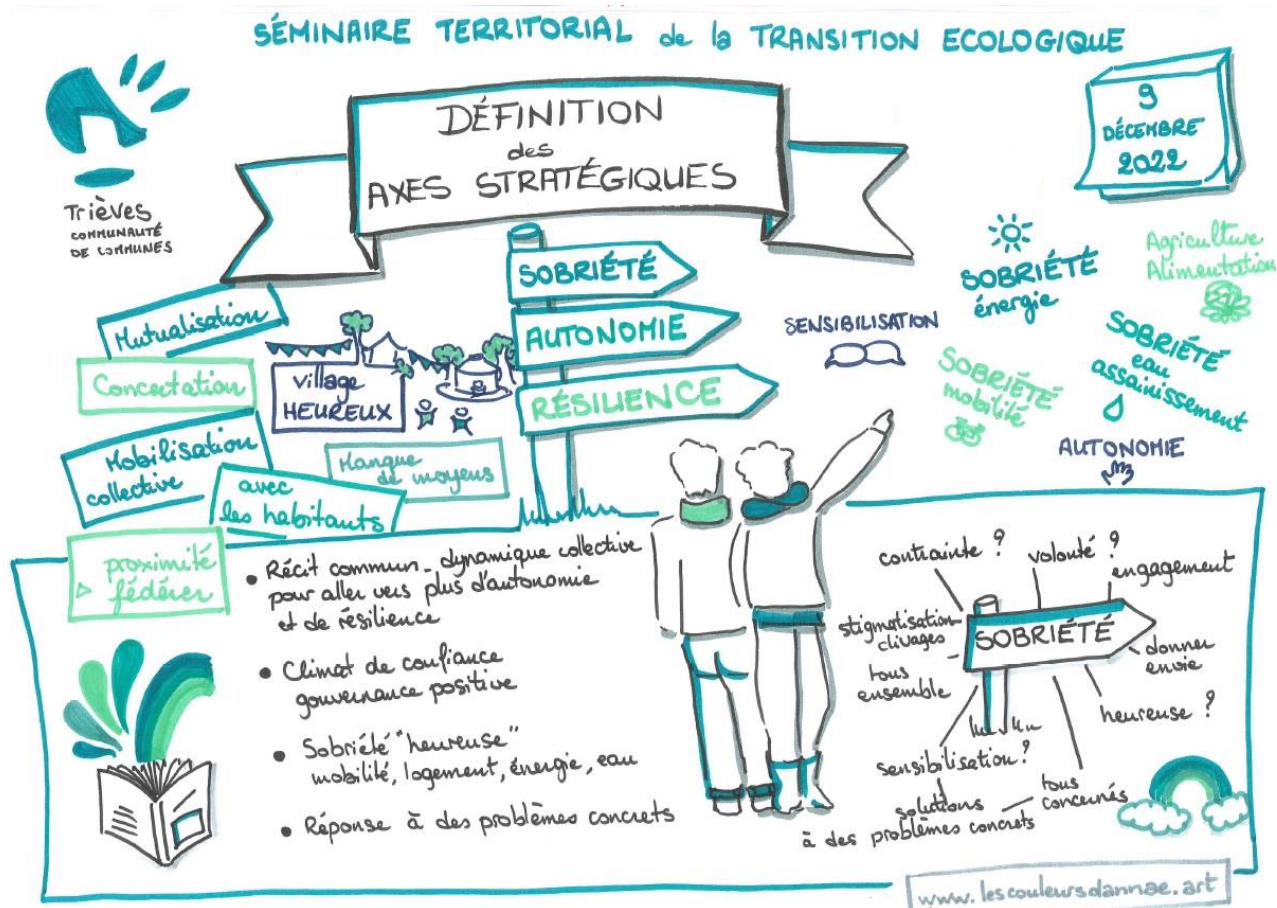 SÉMINAIRE TERRITORIAL de la TRANSITION ECOLOGIQUE
Trièves
COMMUNAUTÉ
DE COMMUNES
DÉFINITION
des
AXES STRATÉGIQUES
9
DÉCEMBRE
2022
SOBRIÉTÉ
AUTONOMIE
RÉSILIENCE
Mutualisation
Concertation
Mobilisation
collective
avec
les habitants
proximité
fédérer
village
HEUREUX
Manque
de moyens
SENSIBILISATION
SOBRIÉTÉ
énergie
Agriculture
Alimentation
SOBRIÉTÉ
mobilité
SOBRIÉTÉ
eau
assainissement
AUTONOMIE
• Récit commun_dynamique collective
pour aller vers plus d'autonomie
et de résilience
• Climat de confiance
gouvernance positive
• Sobriété "heureuse"
mobilité, logement, énergie, eau
• Réponse à des problèmes concrets
contrainte ?
volonté ?
engagement
stigmatisation
clivages
SOBRIÉTÉ
donner
envie
tous
ensemble
heureuse ?
sensibilisation?
tous
concernés
solutions
à des problèmes concrets
www.lescouleursdannae.art